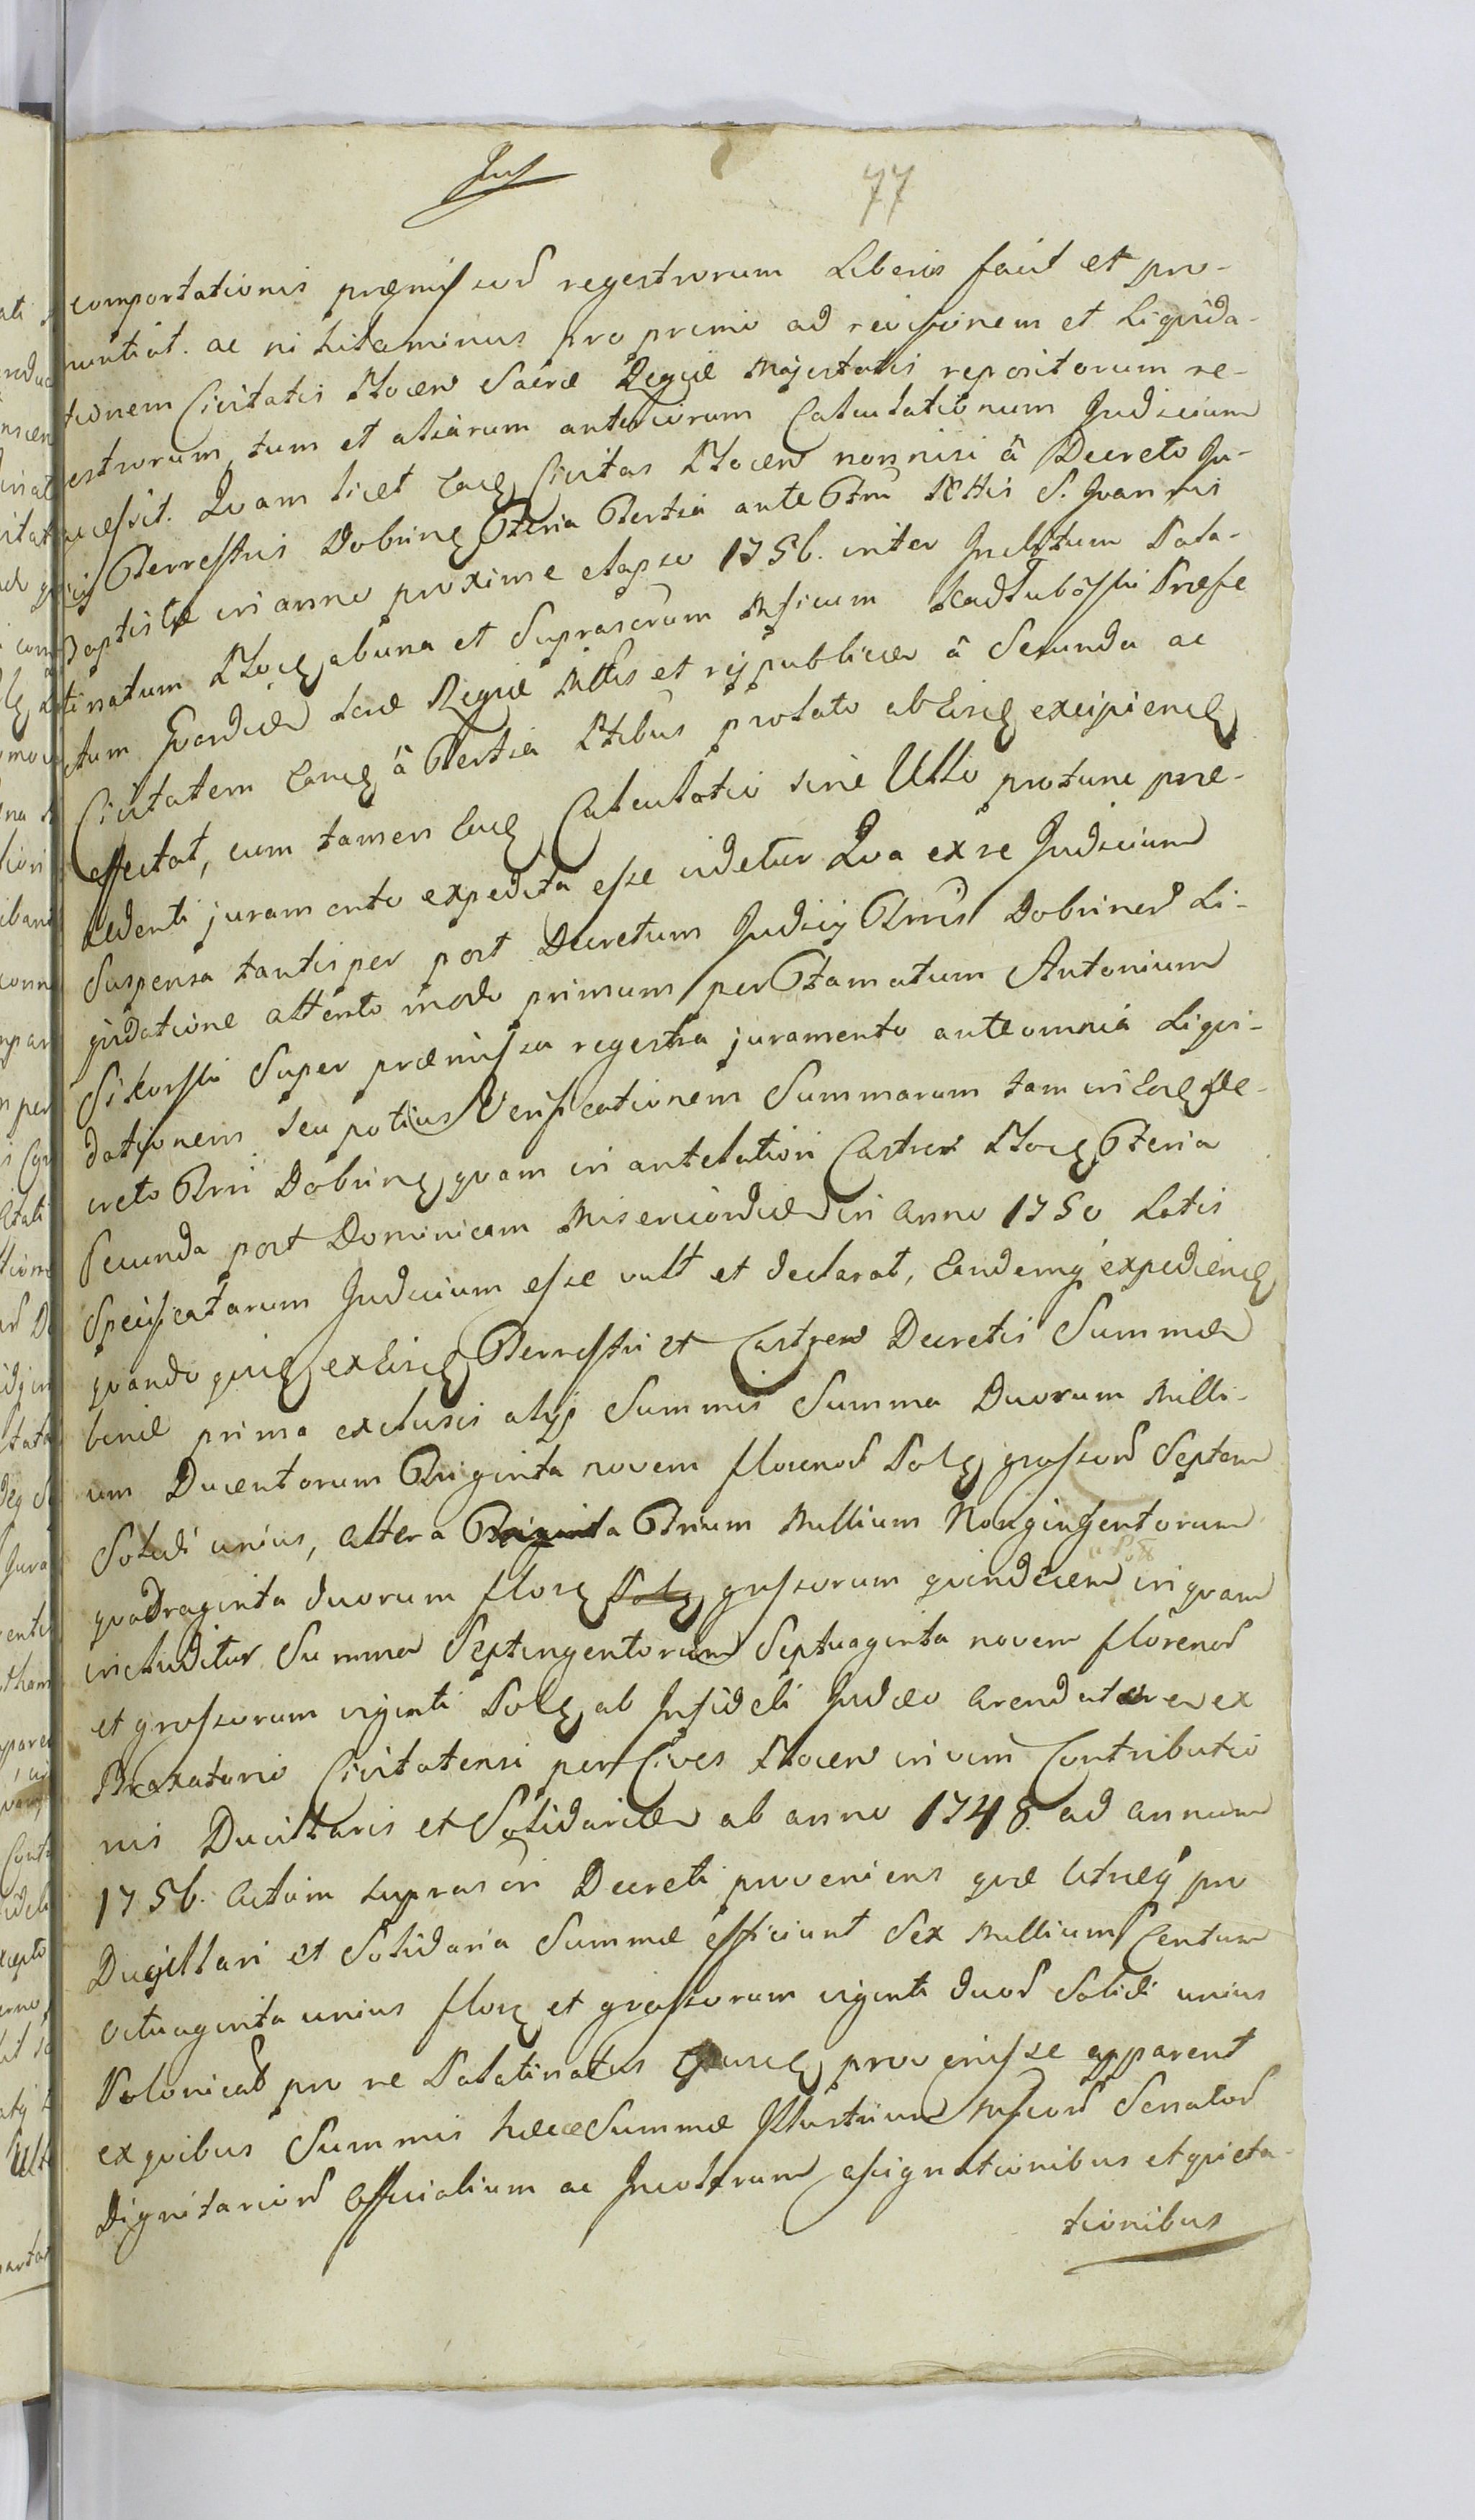 77
comportationis præmissorũ regestrorum Liberos facit et pro-
nuntiat. ac nihilominus pro primo ad revisionem et Liquida-
tionem Civitatis Plocen Sacræ Regiæ Majestatis repositorum re-
estrorum, tum et aliarum anteriorum Calculationum Judicium
accessit. Quam licet Eadę Civitas Plocen nonnisi â Decreto Ju-
cij Terrestris Dobrinę Feria Tertia ante Ftm Nttis S. Joannis
Baptistæ in anno proxime elapso 1756. inter Inclytum Pala-
tinatum Plocę ab una et Suprascrum Mficum Kadłubőski Præfe
ctum Gvardiæ Sacræ Regiæ Mttis et reipublicæ â Secunda ac
Civitatem Eandę â Tertia Ptibus prolato ab Eisdę excipiendę
effectat, cum tamen Eadę Calculatio sine Ullo protunc præ-
cedenti juramento expedita esse videtur Qva ex re Judicium
Suspensa tantisper post Decretum Judicij Trris Dobrinen Li-
quidatione attento modo primum per Ftamatum Antonium
Sikorski Super præmissa regestra juramento ante omnia Liqui-
dationem seu potius Verificationem Summarum tam in Eodę De-
creto Trri Dobrinę quam in antelatiori Castren Plocę Feria
Secunda post Dominicam Misericordiæ in Anno 1750 Latis
Specificatarum Judicium esse vult et declarat, Eandemq́ expediendę
quandoquidę ex Eisdę Terrestri et Castren Decretis Summæ
binæ prima exclusis alijs Summis Summa Duorum Milli-
um Ducentorum Triginta novem florenorũ Polę grossorũ Septem
Solidi unius, altera Triginta Trium Millium Nongingentorum
quadraginta duorum florę Polę grossorum quindecem in quam
includitur Summa Septingentorum Septuaginta novem florenorũ
et grossorum viginti Polę ab Infideli Judæo Arendatore ex
Braxatorio Civitatensi per Cives Plocen in vim Contributio
nis Ducillaris et Solidariæ ab anno 1748. ad annum
1756. Actum suprascri Decreti proveniens quæ Utræq́ pro
Ducillari et Solidaria Summæ efficiunt Sex Millium Centum
Octuaginta unius florę et grossorum viginti duorũ Solidi unius
Polonicał pro re Palatinatus Ejusdę provenisse apparent
ex quibus Summis hæce Summæ Illustrium Mficorũ Senatorũ
Dignitariorũ Officialium ac Incolarum assignationibus et quieta-
tionibus